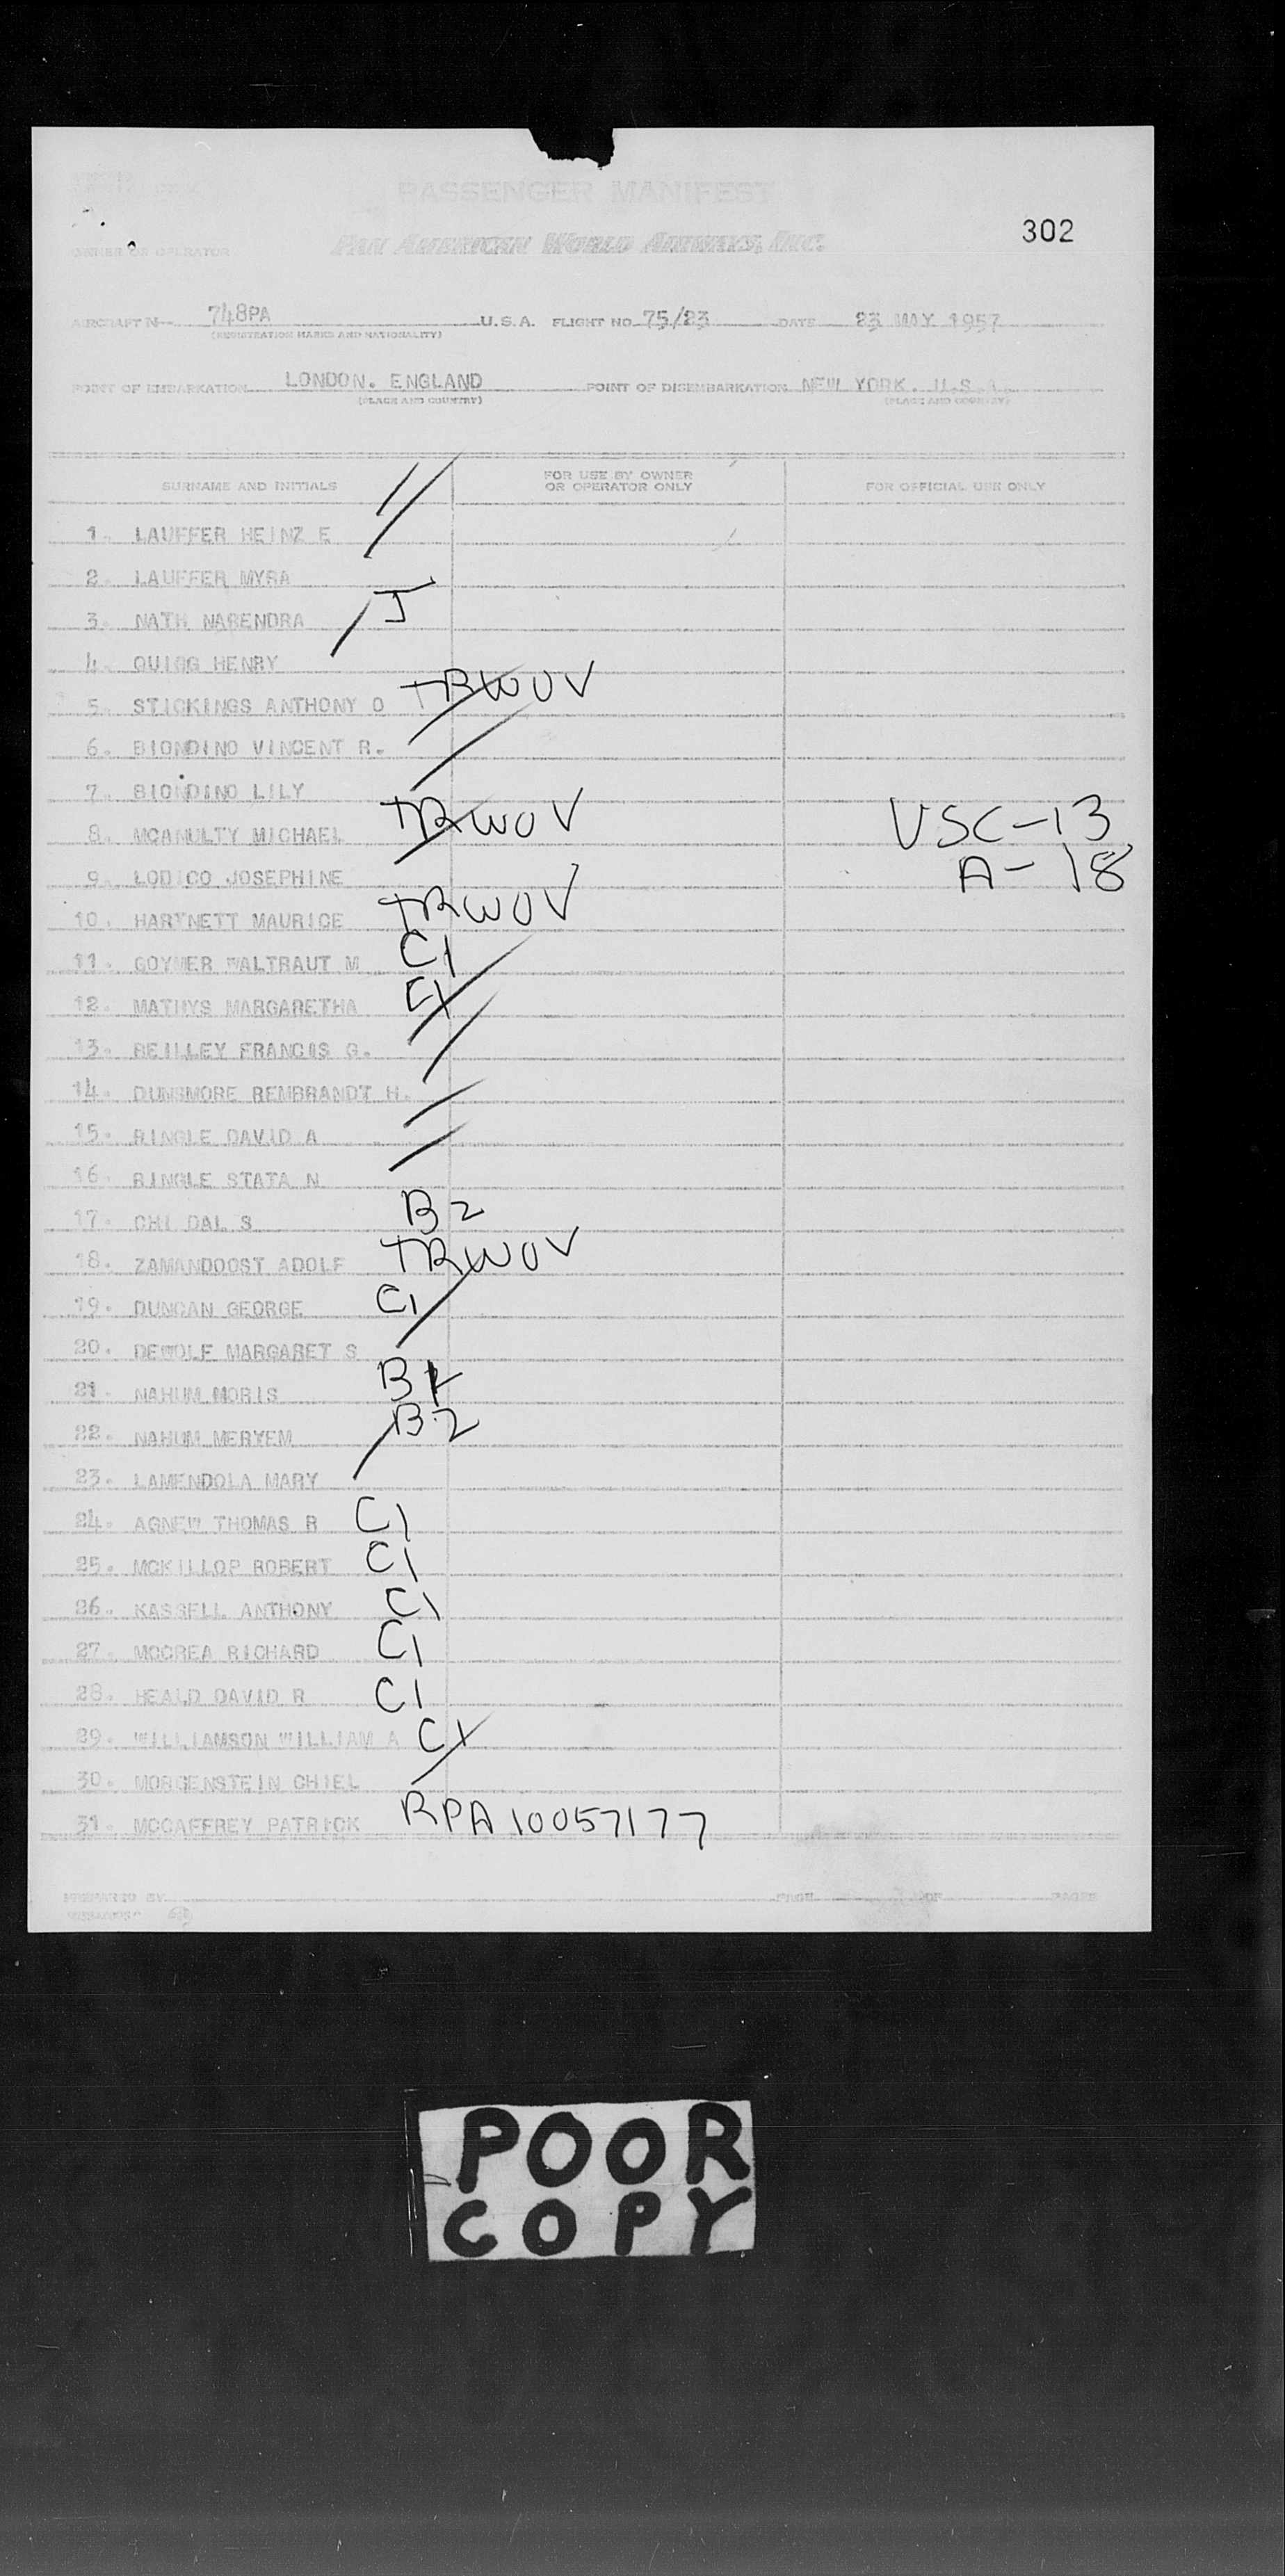 PASSENGER MANIFEST
302
OWNER OR OPERATOR PAN AMERICAN WORLD AIRWAYS, INC.
AIRCRAFT N- 748PA U.S.A. FLIGHT NO. 75/23 DATE 23 MAY 1957
(REGISTRATION MARKS AND NATIONALITY)
POINT OF EMBARKATION LONDON. ENGLAND POINT OF DISEMBARKATION NEW YORK. U.S.A.
(PLACE AND COUNTRY) (PLACE AND COUNTRY)
SURNAME AND INITIALS FOR USE BY OWNER OR OPERATOR ONLY FOR OFFICIAL USE ONLY
1. LAUFFER HEINZ E
2. LAUFFER MYRA
3. NATH NARENDRA J
4. QUIGG HENRY
5. STICKINGS ANTHONY O TRWOV
6. BIONDINO VINCENT R.
7. BIONDINO LILY
8. MCANULTY MICHAEL TRWOV USC-13
9. LODICO JOSEPHINE A-18
10. HARTNETT MAURICE TRWOV
11. GOYMER WALTRAUT M C1
12. MATHYS MARGARETHA C1
13. BEILLEY FRANCIS G.
14. DUNSMORE REMBRANDT H.
15. RINGLE DAVID A
16. RINGLE STATA N
17. CHI DAL S B2
18. ZAMANDOOST ADOLF TRWOV
19. DUNCAN GEORGE C1
20. DEWOLF MARGARET S
21. NAHUM MORIS B1
22. NAHUM MERYEM B2
23. LAMENDOLA MARY
24. AGNEW THOMAS R C1
25. MCKILLOP ROBERT C1
26. KASSELL ANTHONY C1
27. MCCREA RICHARD C1
28. HEALD DAVID R C1
29. WILLIAMSON WILLIAM A C1
30. MORGENSTEIN CHIEL
31. MCCAFFREY PATRICK RPA 10057177
PREPARED BY PAGE OF PAGES
POOR
COPY